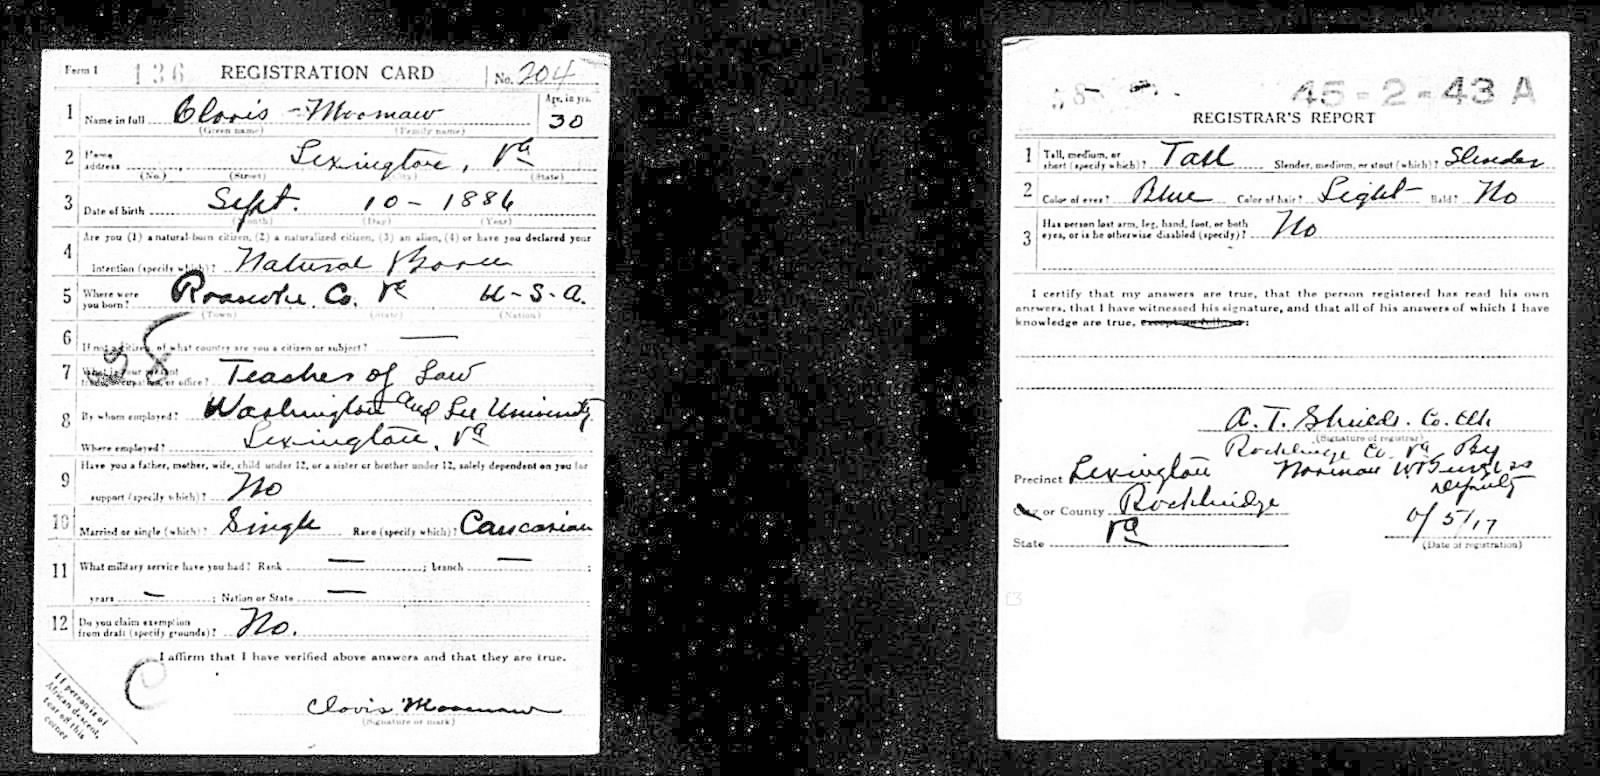 Form 1 136 REGISTRATION CARD No. 204
1 Name in full Clovis - Moomaw Age, in yrs. 30
(Given name) (Family name)
2 Home address Lexington, Va
(No.) (Street) (City) (State)
3 Date of birth Sept. 10 - 1886
(Month) (Day) (Year)
4 Are you (1) a natural-born citizen, (2) a naturalized citizen, (3) an alien, (4) or have you declared your
intention (specify which)? Natural Born
5 Where were you born? Roanoke. Co. Va U-S-A.
(Town) (State) (Nation)
6 If not a citizen, of what country are you a citizen or subject? —
7 What is your present trade, occupation, or office? Teacher of Law
8 By whom employed? Washington and Lee University
Where employed? Lexington, Va
9 Have you a father, mother, wife, child under 12, or a sister or brother under 12, solely dependent on you for
support (specify which)? No
10 Married or single (which)? Single Race (specify which)? Caucasian
11 What military service have you had? Rank — ; branch — ;
years — ; Nation or State —
12 Do you claim exemption from draft (specify grounds)? No.
I affirm that I have verified above answers and that they are true.
Clovis Moomaw
(Signature or mark)
If person is of
African descent,
tear off this
corner
45-2-43 A
REGISTRAR'S REPORT
1 Tall, medium, or short (specify which)? Tall Slender, medium, or stout (which)? Slender
2 Color of eyes? Blue Color of hair? Light Bald? No
3 Has person lost arm, leg, hand, foot, or both eyes, or is he otherwise disabled (specify)? No
I certify that my answers are true, that the person registered has read his own
answers, that I have witnessed his signature, and that all of his answers of which I have
knowledge are true, except as follows:
A. T. Shields. Co. Clk.
(Signature of registrar)
Rockbridge Co. Va By
Precinct Lexington Norman
Deputy
City or County Rockbridge
State Va
6/5/17
(Date of registration)